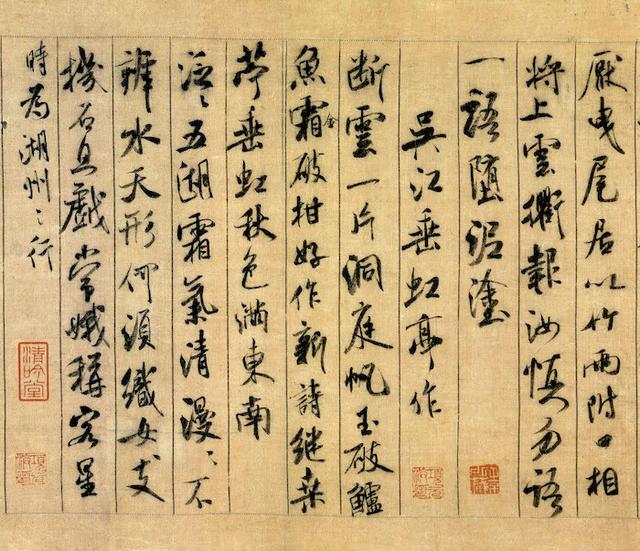 厭曳尾居以竹兩附口相
將上雲衢報汝慎勿語
一語墮泥塗
吳江垂虹亭作
断雲一片洞庭帆玉破鱸
魚霜金破柑好作新詩繼桑
苧垂虹秋色滿東南
泛〻五湖霜氣清漫〻不
辨水天形何須織女支
機石且戲常娥稱客星
時為湖州之行
清吟堂